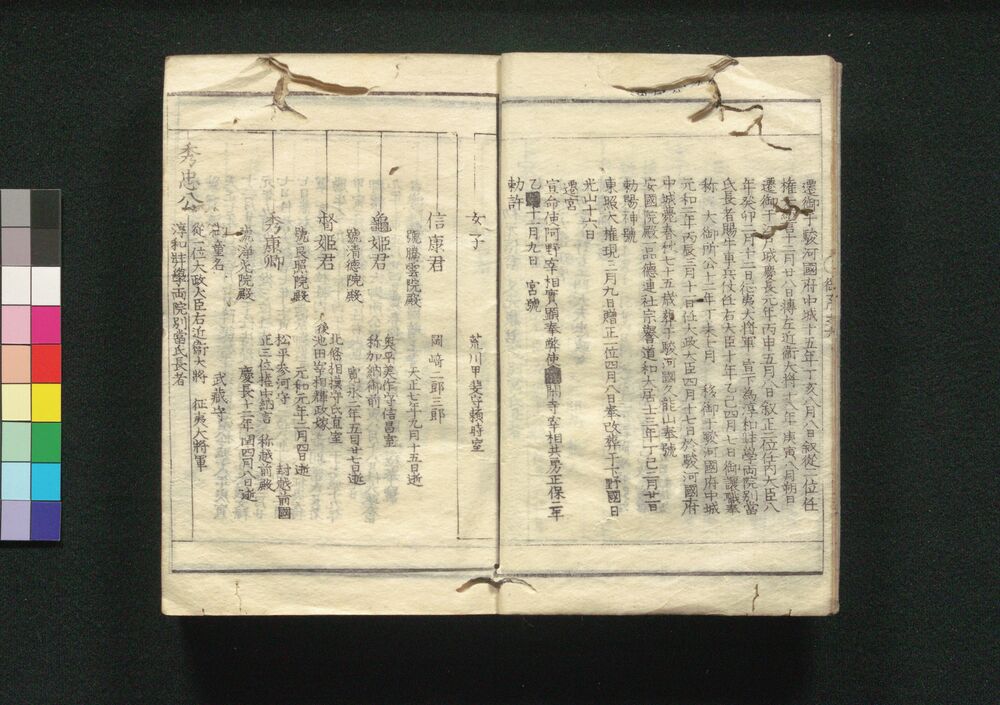 還御于駿河國府中城十五年丁亥八月八日叙從二位任
權大納言十二月廿八日轉左近衛大將十八年庚寅八月朔日
遷御于江戸城慶長元年丙申五月八日叙正二位任内大臣八
年癸卯二月十二日任征夷大將軍 宣下為淳和弉學両院別當
氏長者賜牛車兵仗任右大臣十年乙巳四月七日御讓職奉
称 大御所公十二年丁未七月 移御于駿河國府中城
元和二年丙辰三月 任大政大臣四月十七日於駿河國府
中城薨春秋七十五歳葬于駿河國久能山奉號
安國院殿一品德連社宗譽道和大居士三年丁巳二月廿一日
勅賜神號
東照大権現三月九日贈正一位四月八日奉改葬于下野國日
光山十六日
遷宮
宣命使阿野宰相實顯奉幣使 宰相共房正保二年
乙 十一月九日 宮號
勅許
女子 荒川甲斐守頼時室
信康君 岡﨑二郎三郎
號騰雲院殿 天正七年九月十五日逝
龜姫君 奥平美作守信昌室
称加納御前
號清德院殿 寛永二年五月廿七日逝
督姫君 北條相摸守氏直室
後池田宰相輝政嫁
號良照院殿 元和元年二月四日逝
秀康卿 松平参河守 封越前國
正三位権中納言 称越前殿
號淨光院殿 慶長十二年閏四月八日逝
秀忠公 童名 武藏守
從一位大政大臣右近衛大將 征夷大將軍
淳和弉學両院別當氏長者